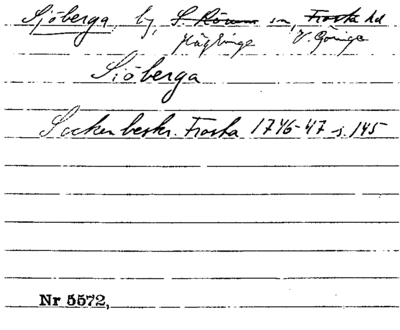 Sjöberga, by, S. Rörum sn, Frosta hd
Häglinge V. Göinge
Siöberga
Sockenbeskr. Frosta 1746-47 s. 145
Nr 5572,